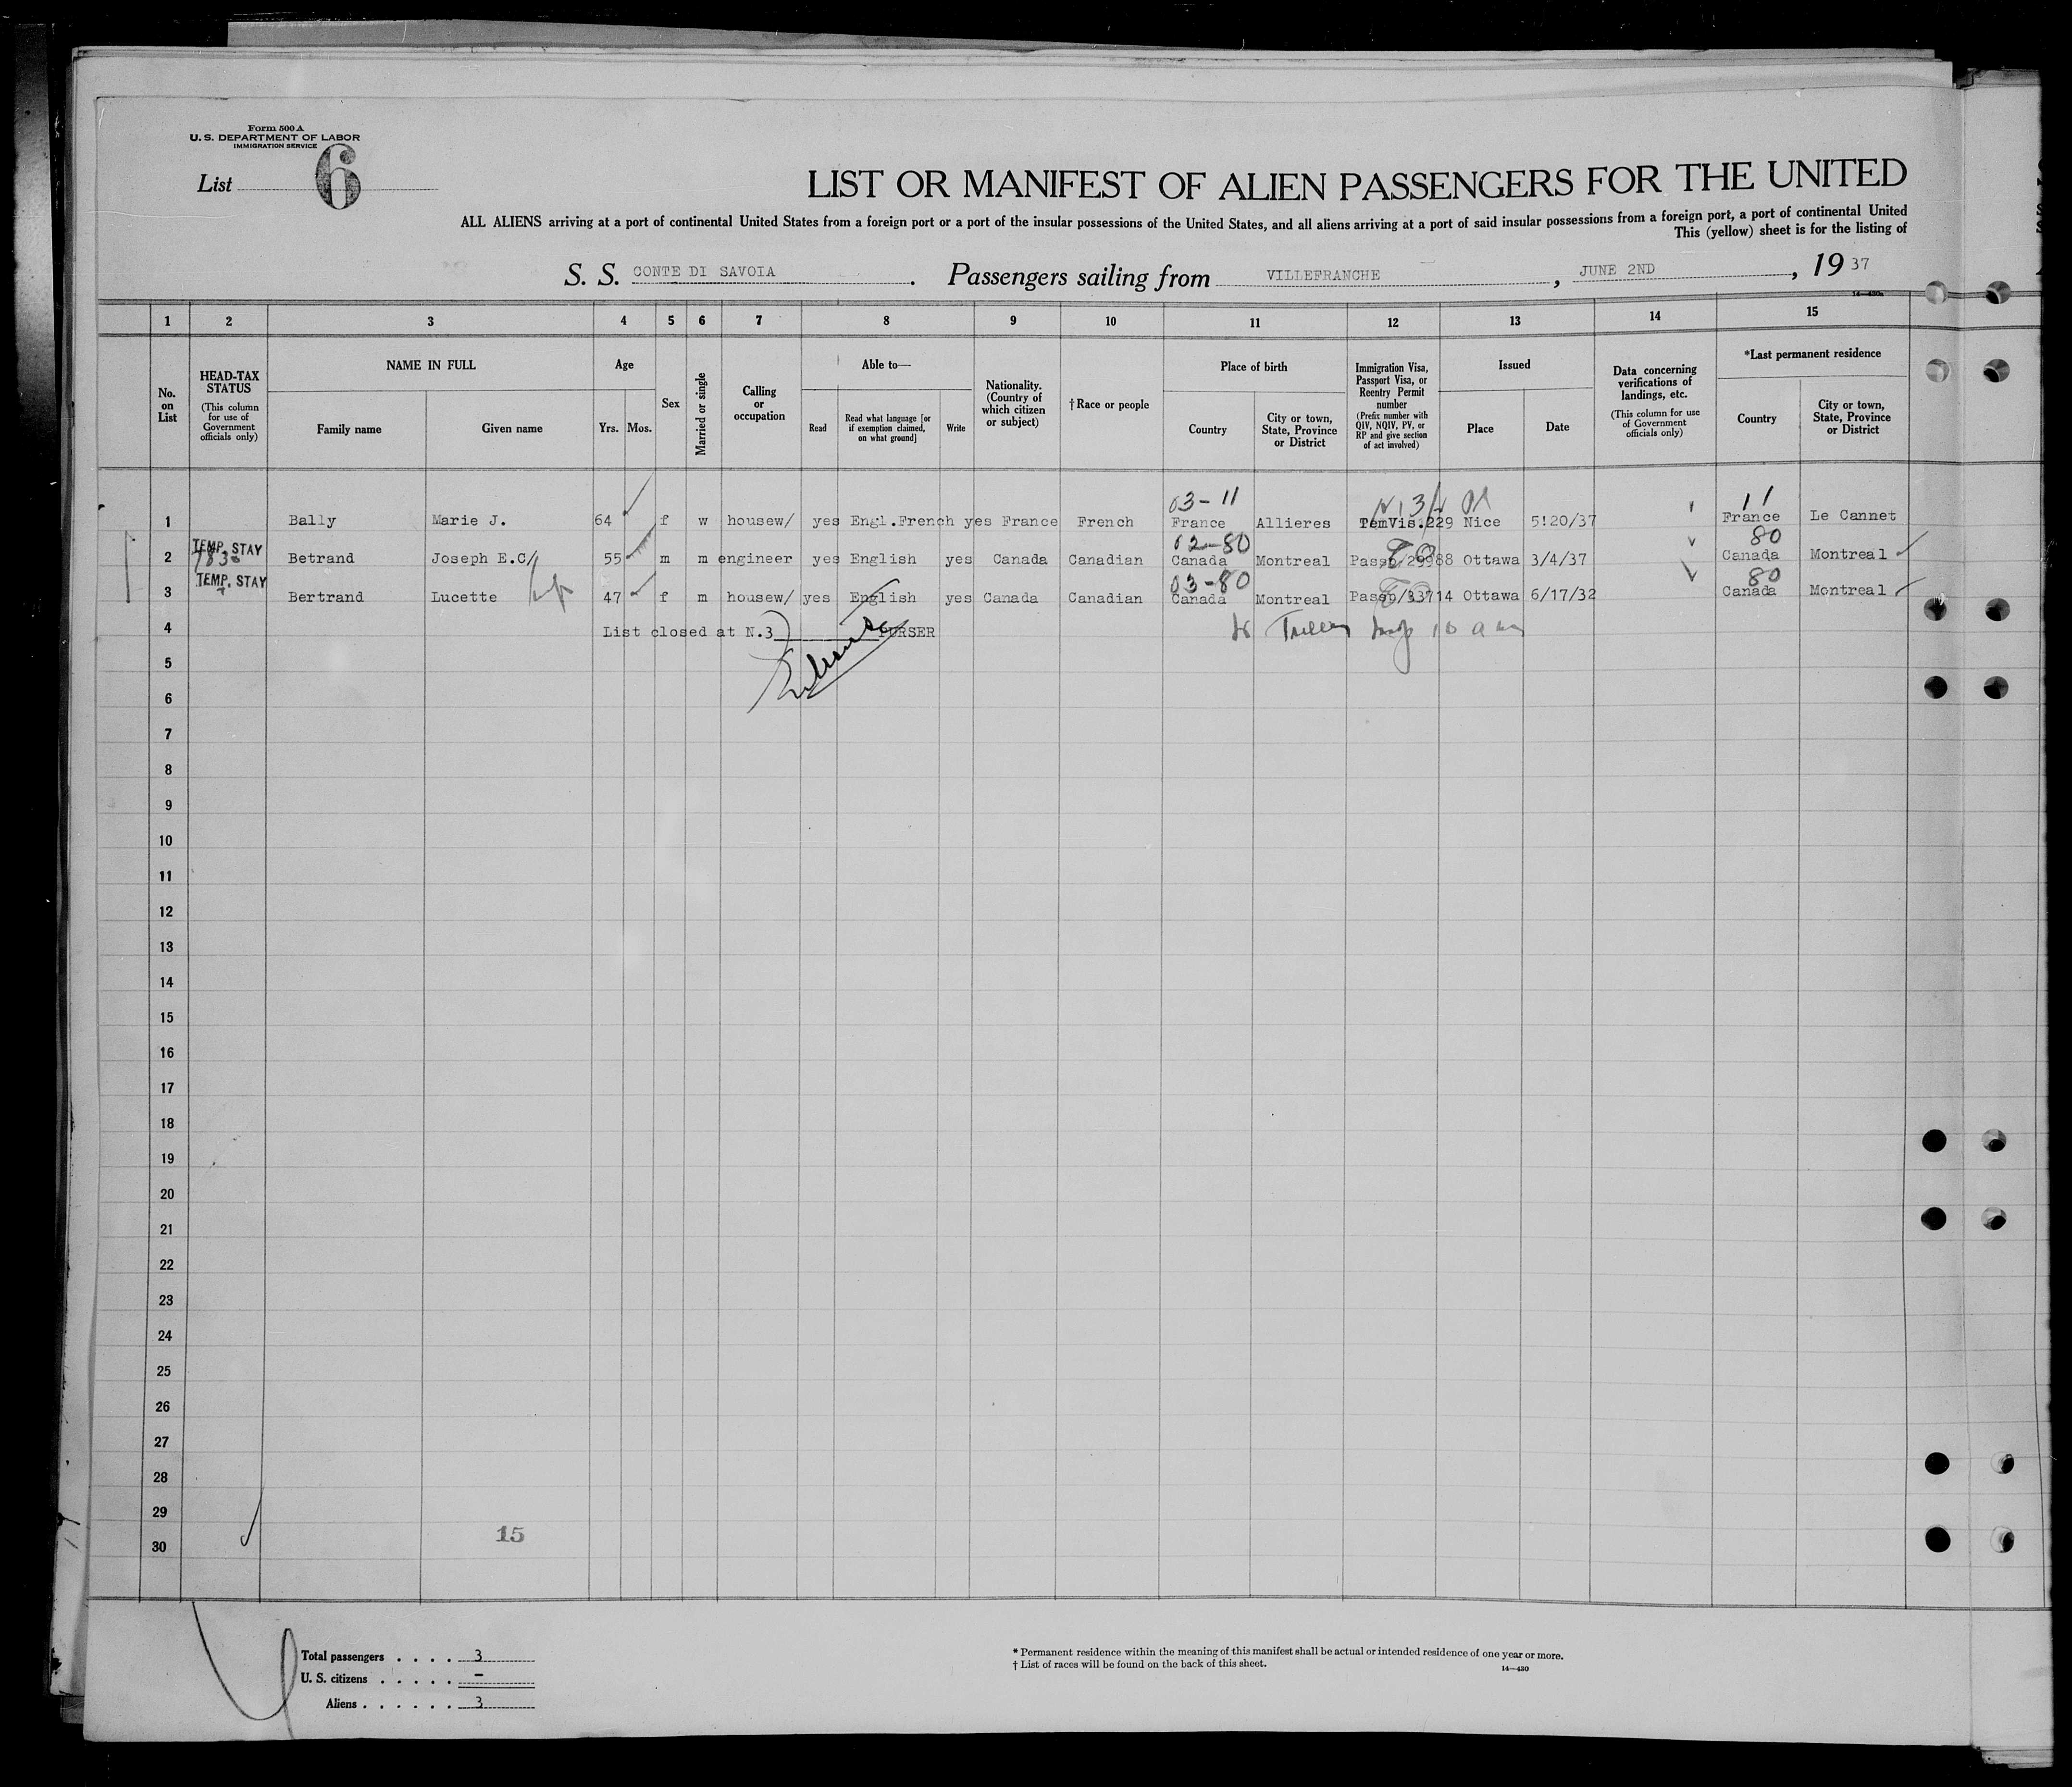 Form 500 A
U. S. DEPARTMENT OF LABOR
IMMIGRATION SERVICE
List 6
LIST OR MANIFEST OF ALIEN PASSENGERS FOR THE UNITED
ALL ALIENS arriving at a port of continental United States from a foreign port or a port of the insular possessions of the United States, and all aliens arriving at a port of said insular possessions from a foreign port, a port of continental United
This (yellow) sheet is for the listing of
S. S. CONTE DI SAVOIA. Passengers sailing from VILLEFRANCHE, JUNE 2ND, 19 37
14—430a
1 2 3 4 5 6 7 8 9 10 11 12 13 14 15
No. on List
HEAD-TAX STATUS (This column for use of Government officials only)
NAME IN FULL
Family name
Given name
Age
Yrs. Mos.
Sex
Married or single
Calling or occupation
Able to—
Read
Read what language [or if exemption claimed, on what ground]
Write
Nationality. (Country of which citizen or subject)
†Race or people
Place of birth
Country
City or town, State, Province or District
Immigration Visa, Passport Visa, or Reentry Permit number (Prefix number with QIV, NQIV, PV, or RP and give section of act involved)
Issued
Place
Date
Data concerning verifications of landings, etc. (This column for use of Government officials only)
*Last permanent residence
Country
City or town, State, Province or District
03-11 11
1 Bally Marie J. 64 f w housew/ yes Engl.French yes France French France Allieres TemVis.229 Nice 5!20/37 France Le Cannet
TEMP. STAY 02-80 80
2 Betrand Joseph E.C/ 55 m m engineer yes English yes Canada Canadian Canada Montreal Passp/29988 Ottawa 3/4/37 Canada Montreal
TEMP. STAY 03-80 80
3 Bertrand Lucette 47 f m housew/ yes English yes Canada Canadian Canada Montreal Passp/33714 Ottawa 6/17/32 Canada Montreal
4 List closed at N.3 PURSER
5
6
7
8
9
10
11
12
13
14
15
16
17
18
19
20
21
22
23
24
25
26
27
28
29
30
15
Total passengers . . . . 3
U. S. citizens . . . . . –
Aliens . . . . . . 3
* Permanent residence within the meaning of this manifest shall be actual or intended residence of one year or more.
† List of races will be found on the back of this sheet.
14—430